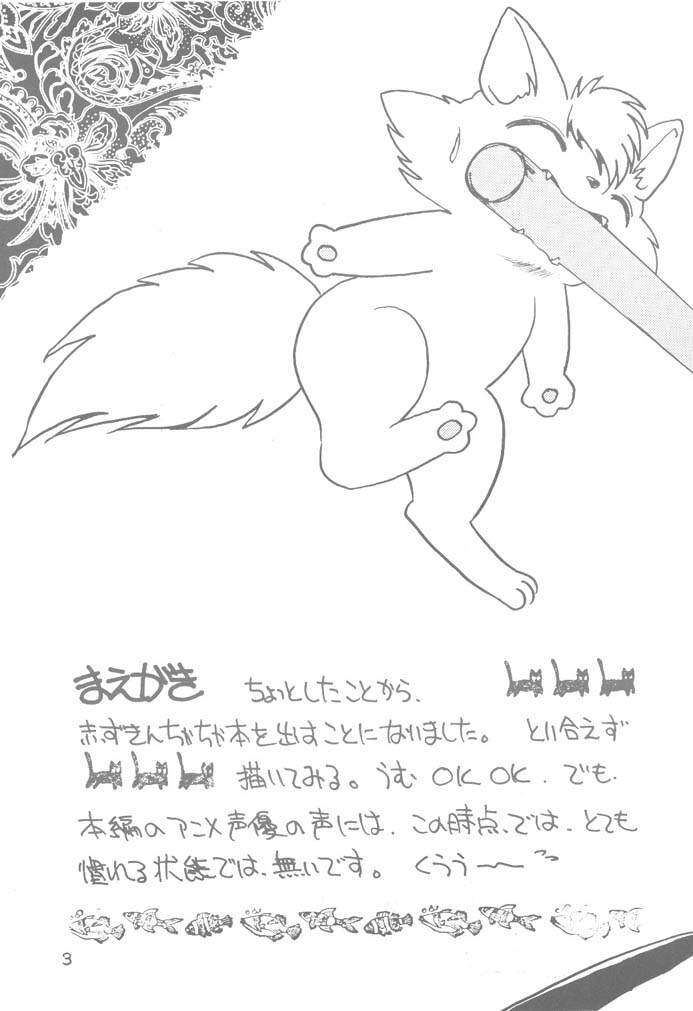 まえがき ちょっとしたことから、
赤ずきんちゃちゃ本を出すことになりました。 とり合えず
描いてみる。うむ OK OK、でも、
本編のアニメ声優の声には、この時点、では、とても
慣れる状態では、無いです。 くうう〜〜っっ
3